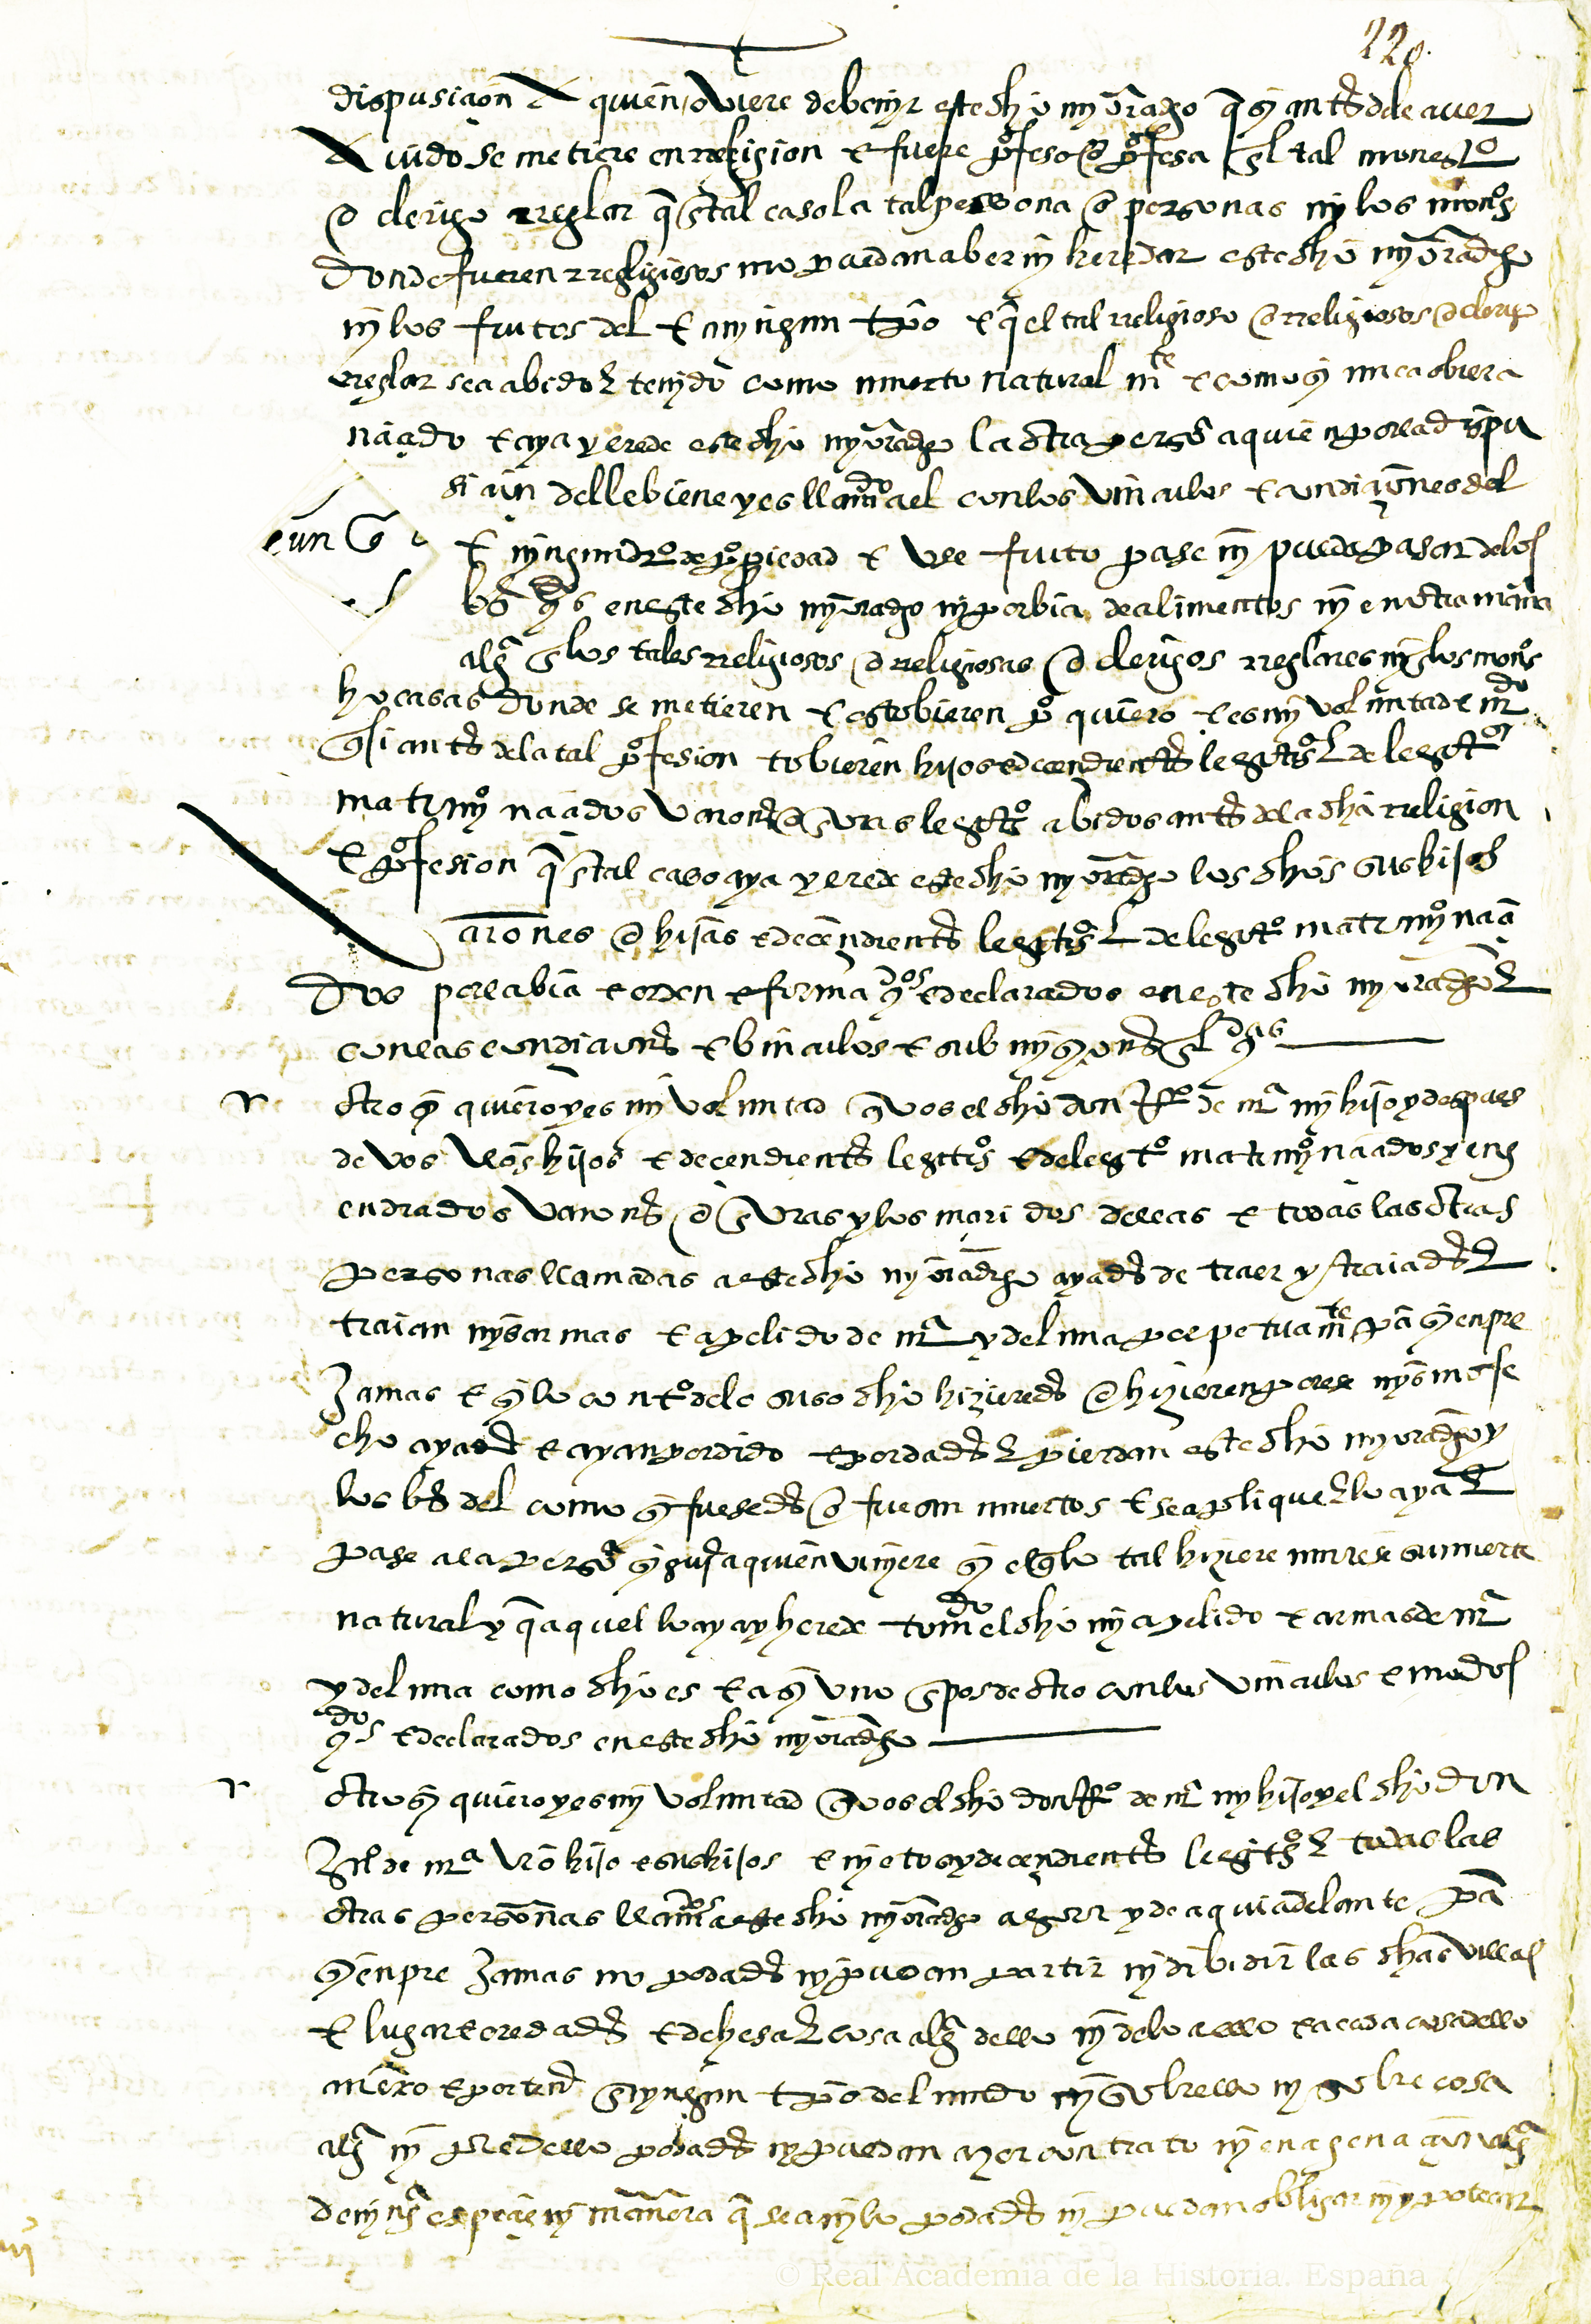 220
dispusiçion A quien oviere de benyr este dho myoradgo q̃ sy antes de le aver
A vido se metiere en rreligion e fuere profeso o profesa en l tal monestº
o clerigo rreglar q̃ en tal caso la tal persona o personas ny los monestºs
donde fueren rreligiosos no puedan aber ny heredar este dho myoradgo
ny los frutos del en nyngun tpo e q̃ el tal rreligioso o rreligiosos o clerigo
rreglar sea abido e tenydo como muerto natural mte e como sy nunca obiera
naçido e aya y erede este dho myoradgo la otra persª a quien por la dispu
siçion del le biene y es llamdo a el con los vinculos e condiçiones del
e nyngun drº de propiedad e use fruto pase ny pueda pasar de los
bs en este dho myoradgo ny por bia de alimentos ny en otra manera
algª en los tales rreligiosos o rreligiosas o clerigos rreglares ny en los monºs
ho casas donde se metieren e estobieren pº quiero e es my voluntad e mdo
q̃ si antes de la tal profesion tobieren hijos e deçendientes legitºs e de legitº
matrimyº naçidos varones o enbras legitºs abidos antes de la dha rreligion
e profesion q̃ en tal caso aya y erede este dho myoradgo los dhos sus hijos
arones o hijas e deçendientes legitºs e de legitº matrimyº naçi
dos por la bia e orden e forma e declarados en este dho myoradgo e
con las condiçiones e binculos e submysyones en el
otro sy quiero y es my voluntad q̃ vos el dho don de mª my hijo y despues
de vos vros hijos e deçendientes legitºs e de legitº matrimyº naçidos y eng
endrados varones o enbras y los maridos dellas e todas las otras
personas llamadas a este dho myoradgo ayades de traer y traiades e
traian mys armas e apelido de mª y de luna perpetuamte pª syenpre
Jamas e sy lo contº de lo suso dho hizieredes o hizieren por ese mysmo fe
cho ayades e ayan perdido e perdades e pierdan este dho myoradgo y
los bs del como sy fuesedes o fuesen muertos e se aplique e lo aya e
pase a la persª syguyª a quien vinyere sy el q̃ lo tal hiziere muriese su muerte
natural y q̃ aquel lo aya y herede tomdo el dho my apelido e armas de mª
y de luna como dho es e asy uno en pos de otro con los vinculos e modos
e declarados en este dho myoradgo
otro sy quiero y es my voluntad q̃ vos el dho don de mª my hijo y el dho don
de mª vro hijo e sus hijos e nyetos y deçendientes legitºs e todas las
otras personas llamdas a este dho myoradgo agora y de aqui adelante pª
syenpre Jamas no podades ny puedan partir ny dibidir las dhas villas
e lugar e eredades e dehesa e cosa algª dello ny de lo a ello e a cada cosa dello
anexo e pertente en nyngun tpo del mundo ny sobre ello ny sobre cosa
algª ny pte dello podades ny puedan azer contrato ny enagenaçion algª
de nyngª espeçie ny manera q̃ sea ny lo podades ny puedan obligar ny ypotecar
© Real Academia de la Historia. España